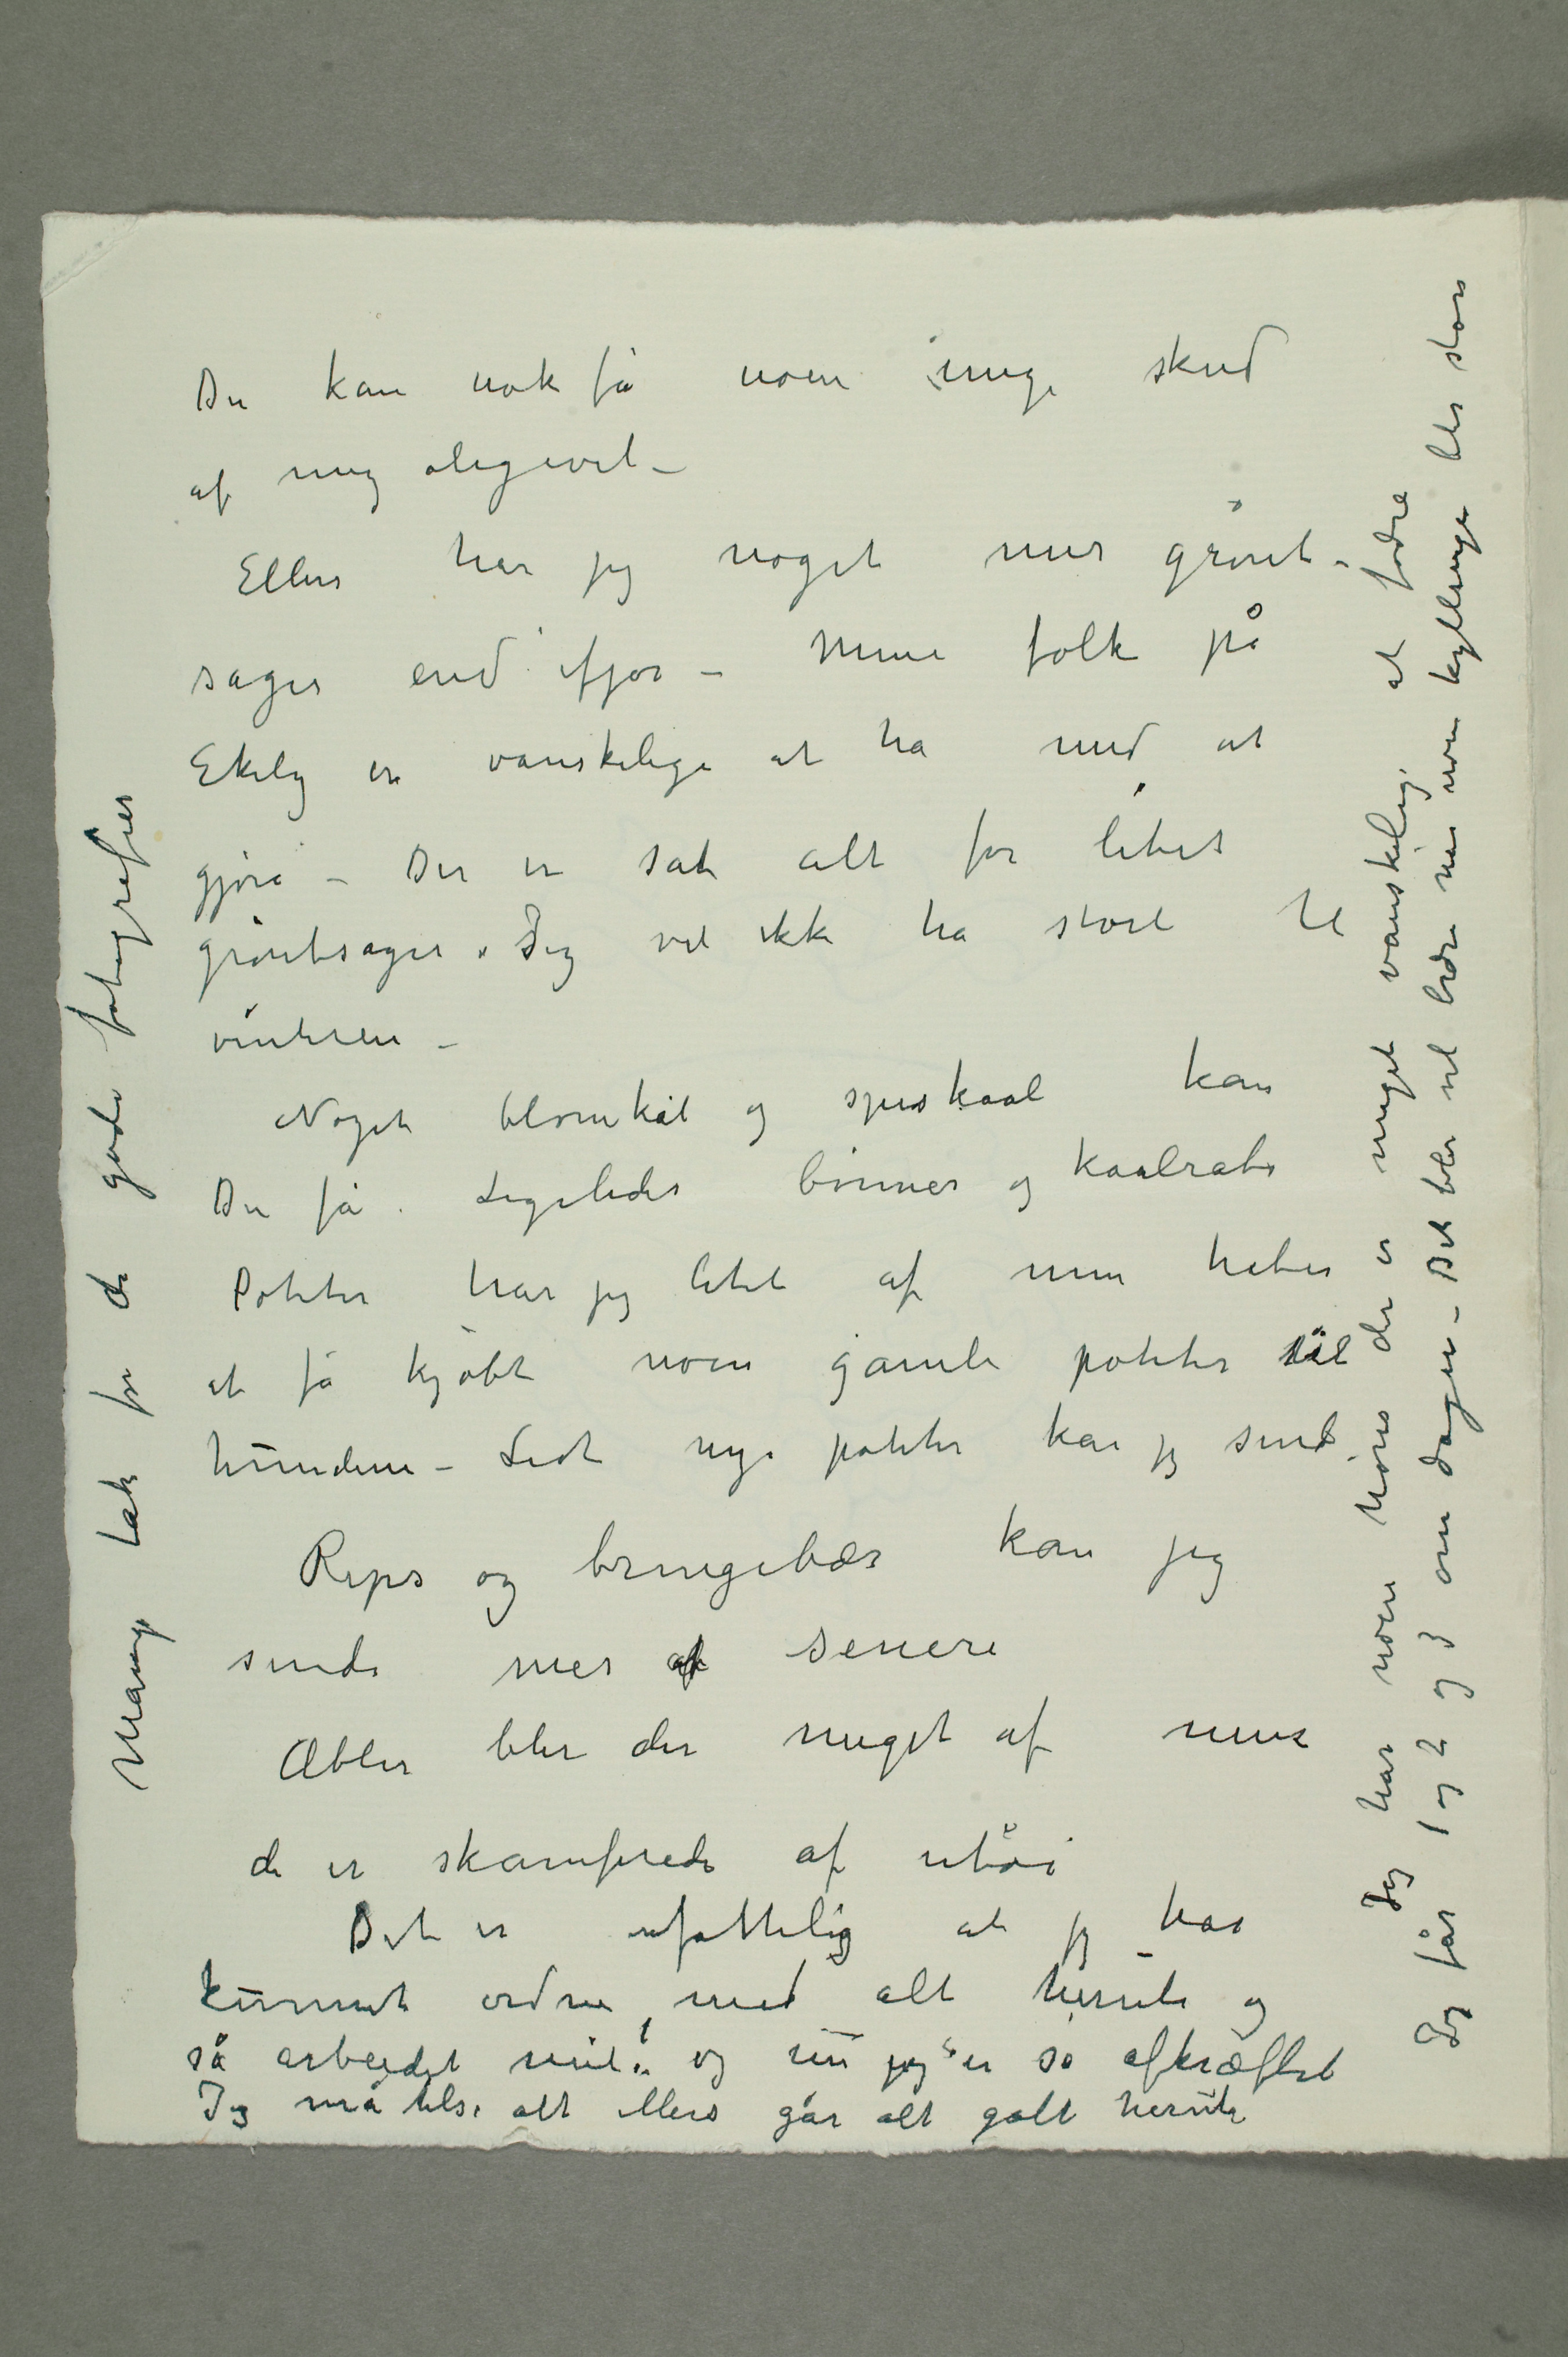 Du kan nok få noen unge skud
af mig aligevel –
Ellers har jeg noget mer grønt-
sager end ifjor – Mine folk på
Ekely er vanskelige at ha med at
gjøre – Der er sat alt for litet
grøntsager. Jeg vil ikke ha stort til
vinteren –
Noget blomkål og spidskaal kan
Du få. Ligeledes bønner og kaalrabi
Poteter har jeg litet af men håber
at få kjøbt noen gamle poteter til
hundene – Lidt nye poteter kan jeg sende
Rips og bringebær kan jeg
sende mer af senere
Æbler blir der meget af men
de er skamferede af utøi
Det er ufattelig at jeg har
kunnet ordne med alt herute og
så arbeidet mit – og nu jeg er så afkræftet
Jeg må til alt ellers går alt galt herute
Mange tak for de gode fotografier
Jeg har noen Høns der er meget vanskelig at fodre
Jeg får 1 og 2 og 3 om dagen – Det blir vel bedre når noen kyllinger blir store